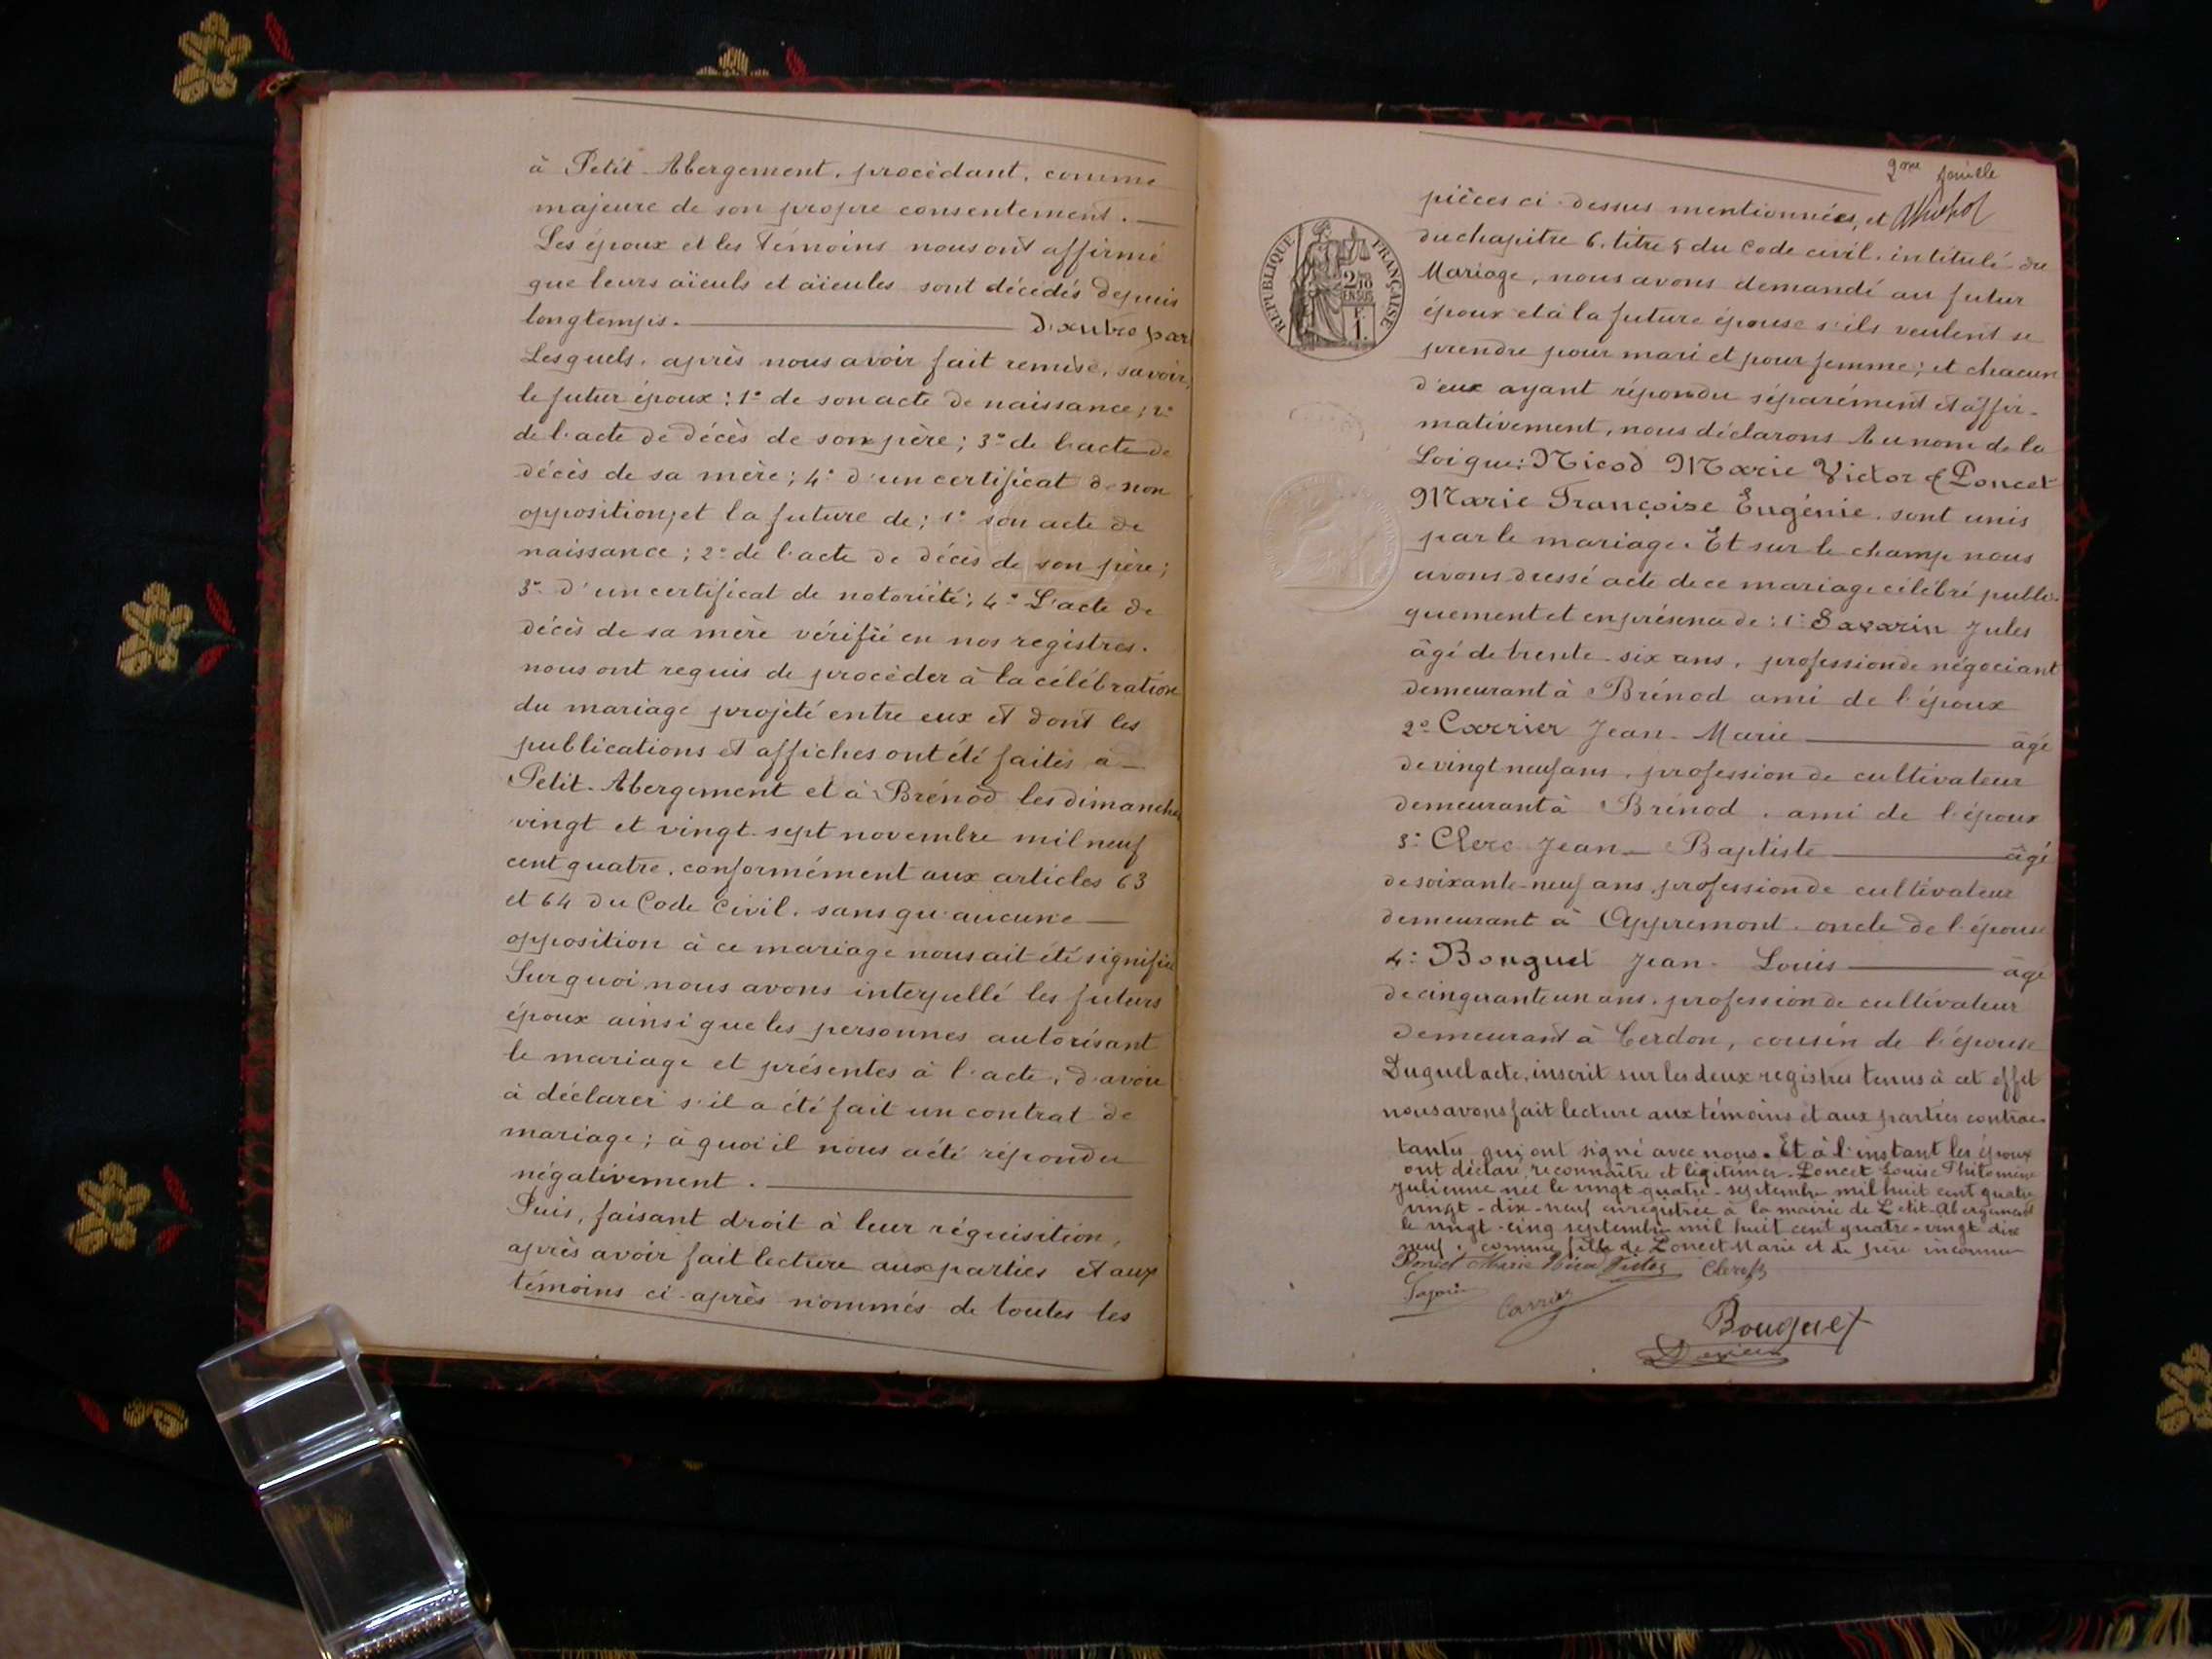 à Petit-Abergement, procèdant, comme
majeure de son propre consentement.
Les époux et les témoins nous ont affirmé
que leurs aïeuls et aïeules sont décédés depuis
longtemps. D'autre part
Lesquels, après nous avoir fait remise, savoir,
le futur époux: 1° de son acte de naissance; 2°
de l'acte de décès de son père; 3° de l'acte de
décès de sa mère; 4° d'un certificat de non
opposition, et la future de; 1° son acte de
naissance; 2° de l'acte de décès de son père;
3° d'un certificat de notoriété; 4° L'acte de
décès de sa mère vérifié en nos registres.
nous ont requis de procéder à la célébration
du mariage projeté entre eux et dont les
publications et affiches ont été faites à
Petit-Abergement et à Brénod les dimanches
vingt et vingt-sept novembre mil neuf
cent quatre, conformément aux articles 63
et 64 du Code Civil, sans qu'aucune
opposition à ce mariage nous ait été signifiée
Sur quoi, nous avons interpellé les futurs
époux ainsi que les personnes autorisant
le mariage et présentes à l'acte, d'avoir
à déclarer s'il a été fait un contrat de
mariage; à quoi il nous a été répondu
négativement.
Puis, faisant droit à leur réquisition,
après avoir fait lecture aux parties et aux
témoins ci-après nommés de toutes les
2me feuille
pièces ci-dessus mentionnées, et
du chapitre 6, titre 5 du Code civil, intitulé du
Mariage, nous avons demandé au futur
époux et à la future épouse s'ils veulent se
prendre pour mari et pour femme; et chacun
d'eux ayant répondu séparément et affir-
mativement, nous déclarons Au nom de la
Loi que: Nicod Marie Victor & Poncet
Marie Françoise Eugénie, sont unis
par le mariage. Et sur le champ nous
avons dressé acte de ce mariage célébré publi-
quement et en présence de: 1° Savarin Jules
âgé de trente-six ans, profession de négociant
demeurant à Brénod ami de l'époux
2° Carrier Jean-Marie âgé
de vingt neuf ans, profession de cultivateur
demeurant à Brénod, ami de l'époux
3° Clerc Jean-Baptiste âgé
de soixante-neuf ans, profession de cultivateur
demeurant à Appremont, oncle de l'épouse
4° Bouquet Jean-Louis âgé
de cinquante un ans, profession de cultivateur
demeurant à Cerdon, cousin de l'épouse
Duquel acte, inscrit sur les deux registres tenus à cet effet
nous avons fait lecture aux témoins et aux parties contrac-
tantes qui ont signé avec nous. Et à l'instant les époux
ont déclaré reconnaître et légitimer Poncet Louise Philomène
Julienne née le vingt quatre septembre mil huit cent quatre
vingt-dix-neuf enregistrée à la mairie de Petit-Abergement
le vingt-cinq septembre mil huit cent quatre-vingt dix
neuf, comme fille de Poncet Marie et de père inconnu
Poncet Marie Nicod Victor Clerc JB
Savarin Carrier
Bouquet
RÉPUBLIQUE FRANÇAISE
2/10
EN SUS
1F.